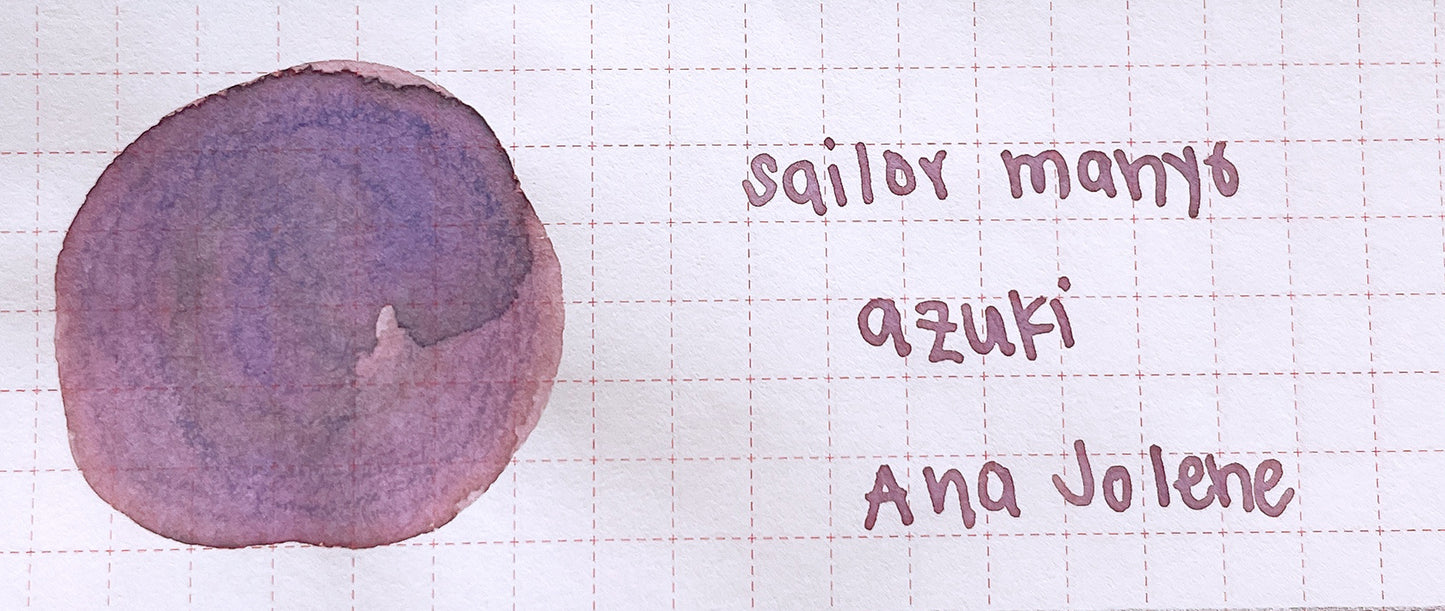 sailor manyo
azuki
Ana Jolene